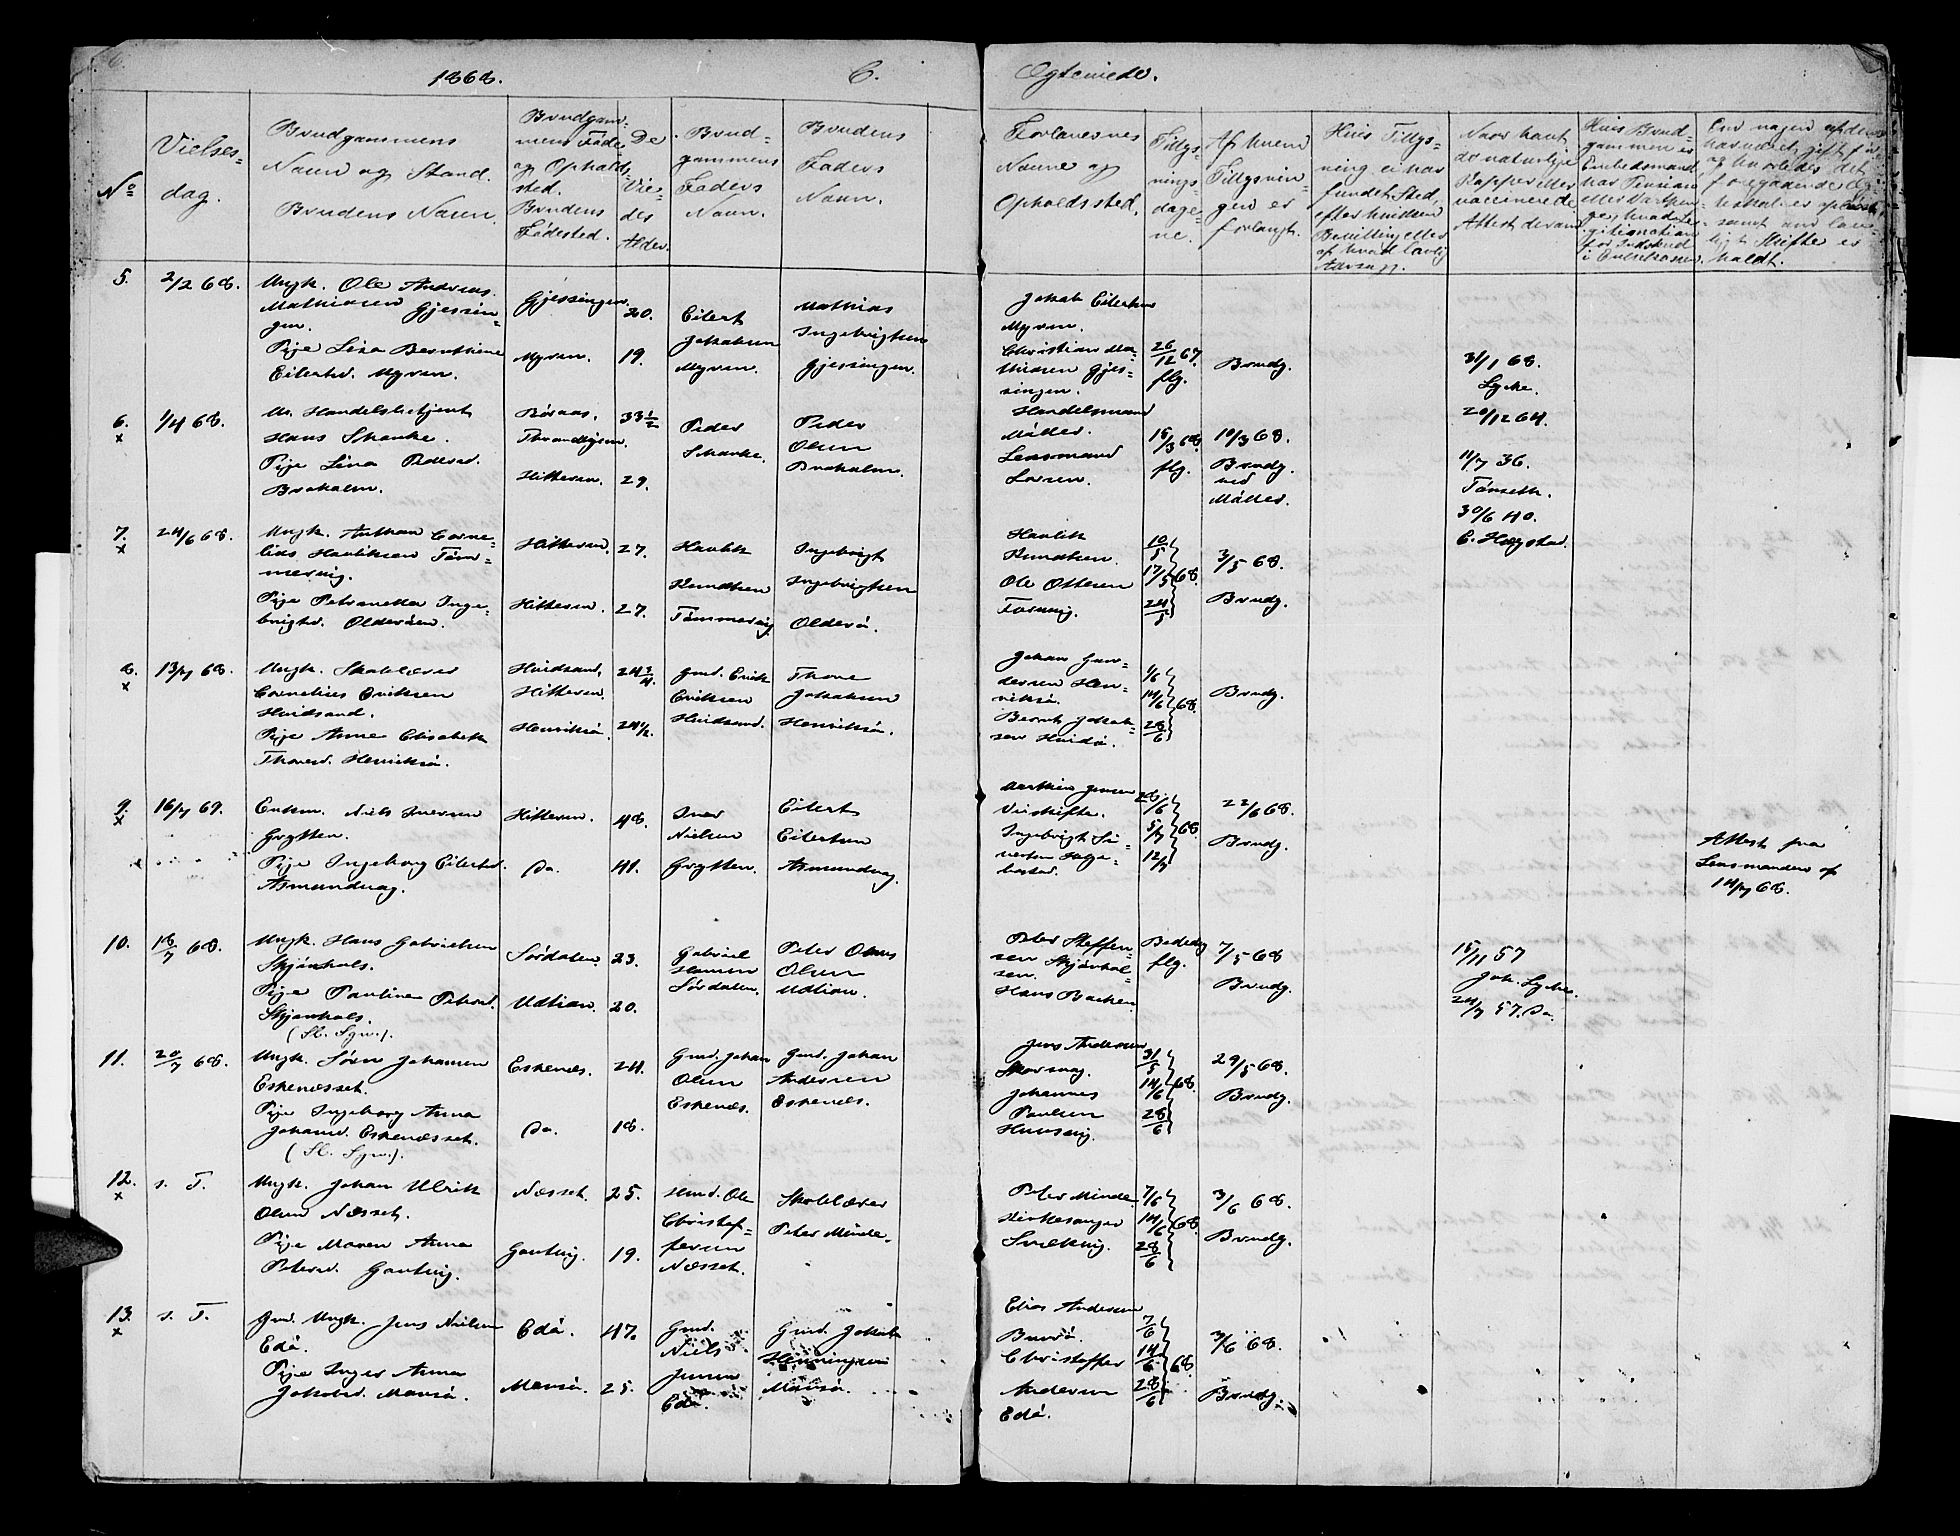 1868.
C.
Egteviede.
No
Vielses-
dag.
Brudgommens
Navn og Stand.
Brudens Navn.
Brudgom-
mens Føde
og Opholds
sted.
Brudens
Fødested.
De
Vie-
des
Alder.
Brud-
gommens
Faders
Navn.
Brudens
Faders
Navn.
Forlovernes
Navne og
Opholdssted.
Tillys-
nings-
dage-
ne.
Af hvem
Tillysnin-
gen er
forlangt.
Hvis Tillys-
ning ei har
fundet Sted,
efter hvilken
Bevilling eller
af hvad lovlig
Aarsag.
Naar havt
de naturlige
Kopper eller
vaccinerede
Attest derom
Hvis Brud-
gommen er
Embedsmand,
har Pension
5.
2/2 68.
Ungk. Ole Andreas
Mathiasen Gjessin-
gen.
Pige Lisa Bernthine
Eilertsd. Myren.
Gjessingen.
Myren.
20.
19.
Eilert
Jakobsen
Myren.
Mathias
Ingebrigtsen
Gjessingen.
Jakob Eilertsen
Myren.
Christian Ma-
thisen Gjes-
singen.
26/12 67.
flg.
Brudg.
31/1 68.
Lycke.
20/12 64.
6.
x
1/4 68.
U. Handelsbetjent
Hans Skanke.
Pige Lina Pedersd.
Brokholm.
Røraas.
Throndhjem.
Hitteren.
33 1/2
29.
Peder
Skanke.
Peder
Olsen
Brokholm.
Handelsmand
Møller.
Lensmand
Lossen.
15/3 68.
flg.
10/3 68.
Brudg.
ved
Møller.
11/7 36.
Tønseth.
30/6 40.
C. Hagstad.
7.
x
24/6 68.
Ungk. Anthon Corne-
lius Havliksen Tøm-
mervig.
Pige Petronella Inge-
brigtsd. Olderøen.
Hitteren.
Hitteren.
27.
27.
Havlik
Knudtsen
Tømmervig
Ingebrigt
Ingebrigtsen
Olderø.
Havlik
Knudtsen.
Ole Ottesen
10/5
17/5 68.
24/5
3/5 68.
Brudg.
8.
x
13/7 68.
Ungk. Skolelærer
Cornelius Eriksen
Hvidsand.
Pige Anne Elisabeth
Thoresd. Henriksø.
Hvidsand,
Hitteren.
Henriksø.
24 3/4.
24 1/2.
Gmd. Erik
Eriksen
Hvidsand.
Thore
Jakobsen
Henriksø.
Johan Gun-
dersen Hen-
riksø.
Bernt Jakob-
sen Hvidø.
1/6
14/6 68.
28/6
Brudg.
9.
x
16/7 69.
Enkem. Niels Iversen
Grytten.
Pige Ingeborg Eilertsd.
Asmundvag.
Hitteren.
Do.
48.
41.
Iver
Nielsen
Grytten.
Eilert
Eilertsen
Asmundvag.
28/6
5/7 68.
12/7
22/6 68.
Brudg.
Attest fra
Lensmanden af
14/7 68.
10.
18/7 68.
Ungk. Hans Gabrielsen
Skjønhals.
Pige Pauline Petersd.
Skjønhals.
(Sl. Sgw.).
Sørdalen.
Udtian.
23.
20.
Gabriel
Hansen
Sørdalen.
Peter Olaus
Olsen
Udtian.
Peter Steffen-
sen Skjønhal-
sen.
Hans Backen
Bededag
flg.
7/5 68
Brudg.
15/11 57
Joh. Lycke.
24/7 57. Do.
11.
20/7 68.
Ungk. Søren Johansen
Eskenæsset.
Pige Ingeborg Anna
Johansd. Eskenæsset.
(Sl. Sgw.).
Eskenæs.
Do.
24.
18.
Gmd. Johan
Olsen
Eskenæs.
Gmd. Johan
Andersen
Eskenæs.
Jens Andersen
Johannes
Paulsen
31/5
14/6 68.
28/6
29/5 68.
Brudg.
12.
x
s. T.
Ungk. Johan Ulrik
Olsen Næsset.
Pige Maren Anna
Petersd. Gautvig.
Næsset.
Gautvig.
25.
19.
Hmd. Ole
Christof-
fersen
Næsset.
Skolelærer
Peter Minde.
Peter Minde
Kirkesanger
7/6
14/6 68.
28/6
3/6 68.
Brudg.
13.
x
s. T.
Gmd. Ungk. Jens Nielsen
Edø.
Pige Inger Anna
Jakobsd. Mausø.
Edø.
Mausø.
47.
25.
Gmd.
Niels
Jensen
Edø.
Gmd. Jakob
Henningsen
Mausø.
Elias Andersen
Burø.
Christoffer
Andersen
Edø.
7/6
14/6 68.
28/6
3/6 68.
Brudg.